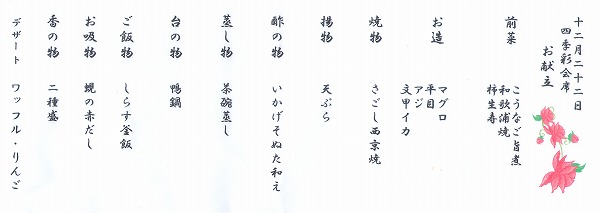 十二月二十二日
四季彩会席
お献立
前菜 こうなご旨煮
和歌浦焼
柿生寿
お造 マグロ
平目
アジ
文甲イカ
焼物 さごし西京焼
揚物 天ぷら
酢の物 いかげそぬた和え
蒸し物 茶碗蒸し
台の物 鴨鍋
ご飯物 しらす釜飯
お吸物 蜆の赤だし
香の物 二種盛
デザート ワッフル・りんご